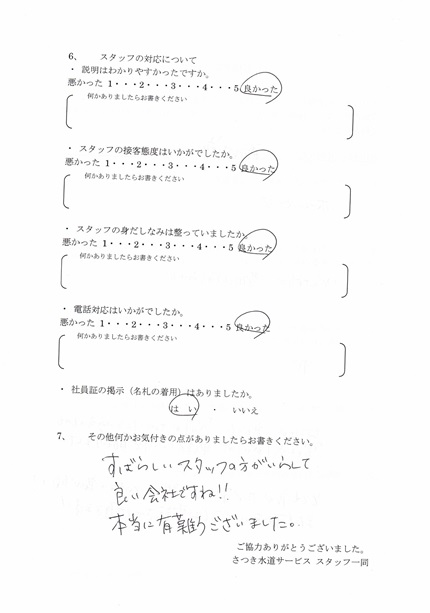 6、 スタッフの対応について
・ 説明はわかりやすかったですか。
悪かった 1・・・2・・・3・・・4・・・5 良かった
何かありましたらお書きください
・ スタッフの接客態度はいかがでしたか。
悪かった 1・・・2・・・3・・・4・・・5 良かった
何かありましたらお書きください
・ スタッフの身だしなみは整っていましたか。
悪かった 1・・・2・・・3・・・4・・・5 良かった
何かありましたらお書きください
・ 電話対応はいかがでしたか。
悪かった 1・・・2・・・3・・・4・・・5 良かった
何かありましたらお書きください
・ 社員証の掲示（名札の着用）はありましたか。
はい ・ いいえ
7、 その他何かお気付きの点がありましたらお書きください。
すばらしいスタッフの方がいらして
良い会社ですね!!
本当に有難うございました。
ご協力ありがとうございました。
さつき水道サービス スタッフ一同